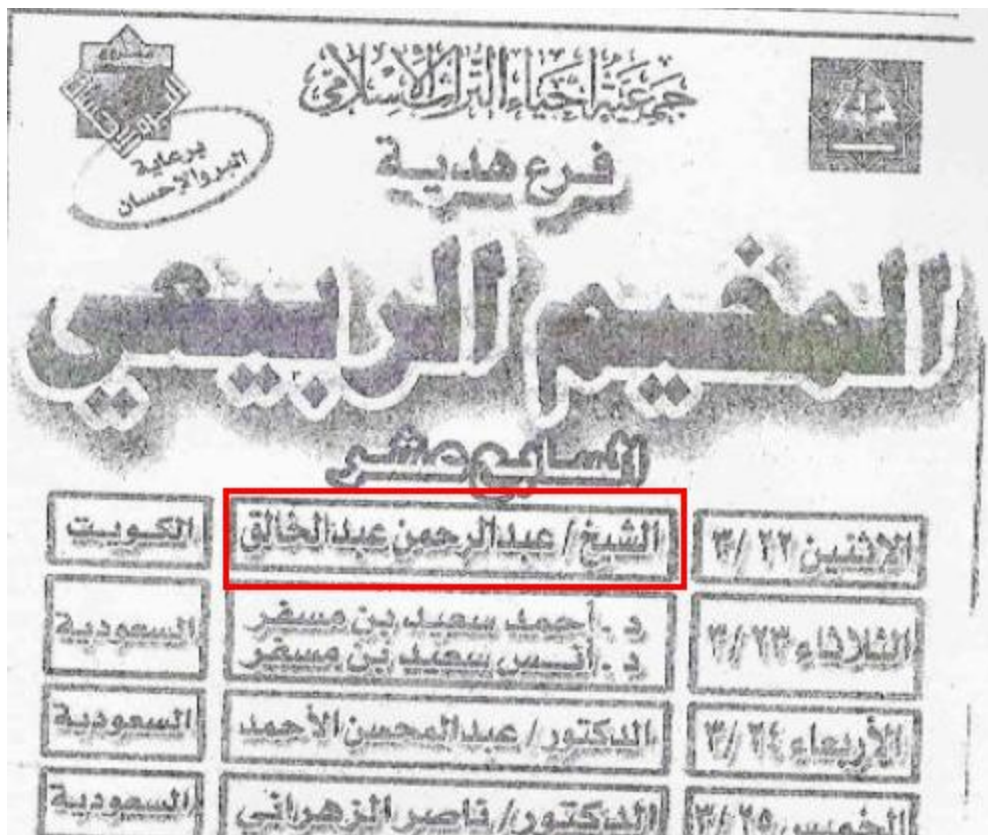 جمعية احياء التراث الاسلامي
برعاية
البر والإحسان
فرع هدية
المخيم الربيعي
السابع عشر
الاثنين ٢٢ /٣ الشيخ / عبدالرحمن عبدالخالق الكويت
الثلاثاء ٢٣ /٣ د . أحمد سعيد بن مسفر السعودية
د . أنس سعيد بن مسفر
الأربعاء ٢٤ /٣ الدكتور / عبدالمحسن الأحمد السعودية
الخميس ٢٥ /٣ الدكتور / ناصر الزهراني السعودية